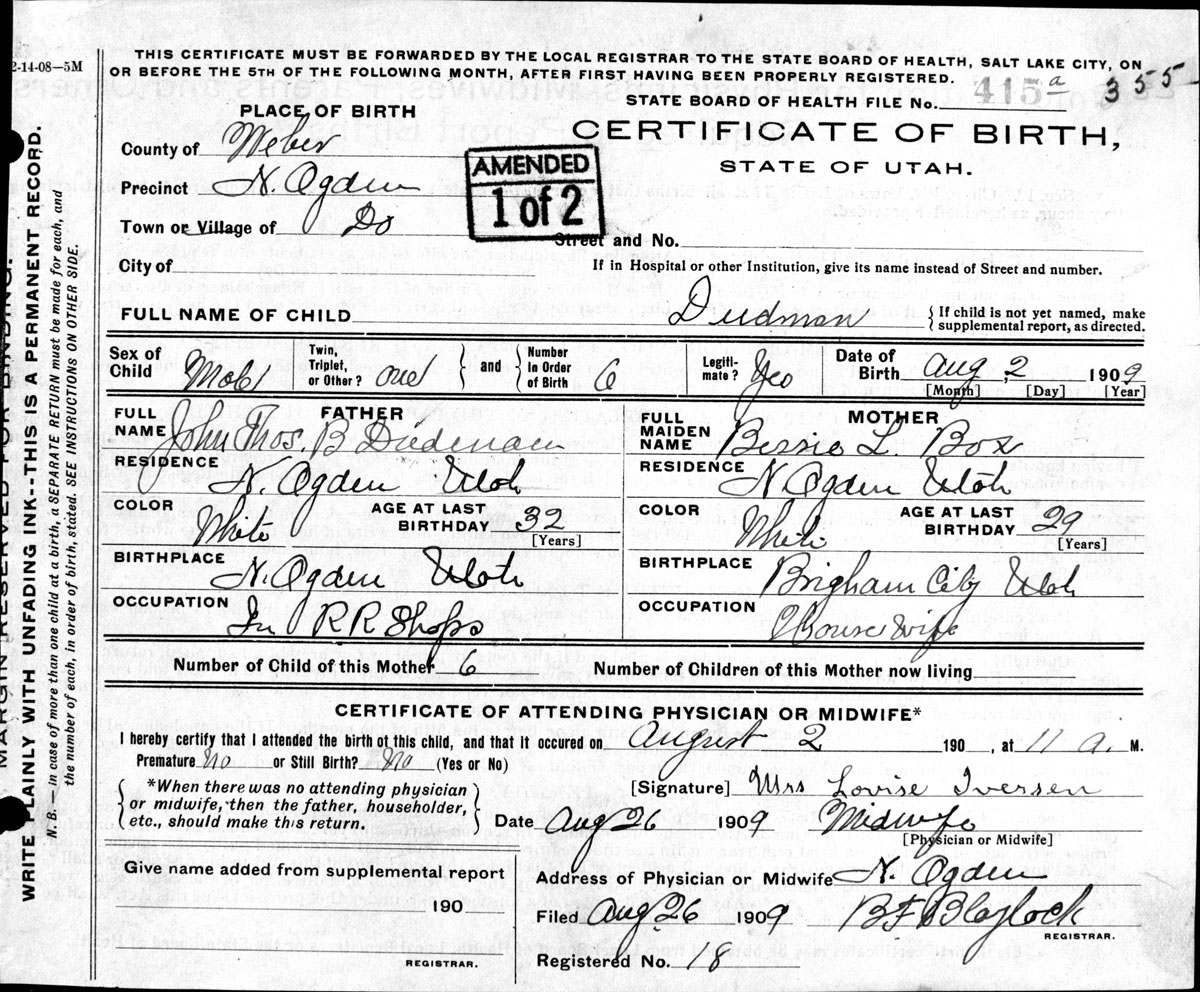 2-14-08—5M
THIS CERTIFICATE MUST BE FORWARDED BY THE LOCAL REGISTRAR TO THE STATE BOARD OF HEALTH, SALT LAKE CITY, ON
OR BEFORE THE 5TH OF THE FOLLOWING MONTH, AFTER FIRST HAVING BEEN PROPERLY REGISTERED.
STATE BOARD OF HEALTH FILE No. 415a 355
PLACE OF BIRTH
CERTIFICATE OF BIRTH,
STATE OF UTAH.
County of Weber
Precinct N. Ogden
Town or Village of Do
AMENDED
1 of 2
Street and No.
City of
If in Hospital or other Institution, give its name instead of Street and number.
FULL NAME OF CHILD Deedman
If child is not yet named, make
supplemental report, as directed.
Sex of Child Twin, Triplet, or Other? one and Number In Order of Birth 6 Legiti-mate? Yes Date of Birth Aug, 2 1909
[Month] [Day] [Year]
FATHER
FULL NAME John Thos. B
RESIDENCE N. Ogden Utah
COLOR White AGE AT LAST BIRTHDAY 32
[Years]
BIRTHPLACE N. Ogden Utah
OCCUPATION In RR Shops
MOTHER
FULL MAIDEN NAME Bessie L. Box
RESIDENCE N Ogden Utah
COLOR White AGE AT LAST BIRTHDAY 29
[Years]
BIRTHPLACE Brigham City Utah
OCCUPATION Housewife
Number of Child of this Mother 6 Number of Children of this Mother now living
CERTIFICATE OF ATTENDING PHYSICIAN OR MIDWIFE*
I hereby certify that I attended the birth of this child, and that it occured on August 2 190 , at 11 a. M.
Premature No or Still Birth? No (Yes or No)
*When there was no attending physician
or midwife, then the father, householder,
etc., should make this return.
[Signature] Mrs Lovise Iversen
Date Aug 26 1909 Midwife
[Physician or Midwife]
Give name added from supplemental report
190
REGISTRAR.
Address of Physician or Midwife N. Ogden
Filed Aug 26 1909 B F Blaylock
REGISTRAR.
Registered No. 18
MARGIN RESERVED FOR BINDING.
WRITE PLAINLY WITH UNFADING INK--THIS IS A PERMANENT RECORD.
N. B.—In case of more than one child at a birth, a SEPARATE RETURN must be made for each, and
the number of each, in order of birth, stated. SEE INSTRUCTIONS ON OTHER SIDE.